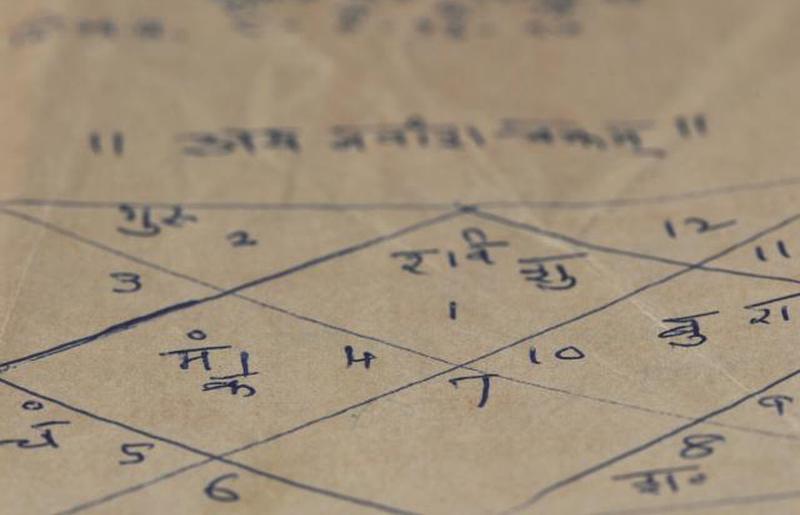 ॥ अथ नवांश चक्रम् ॥
गुरु 2 12
रवि शु 11
3 1 बु रा
मं के 4 10
7
चं 5 8 9
6 श०